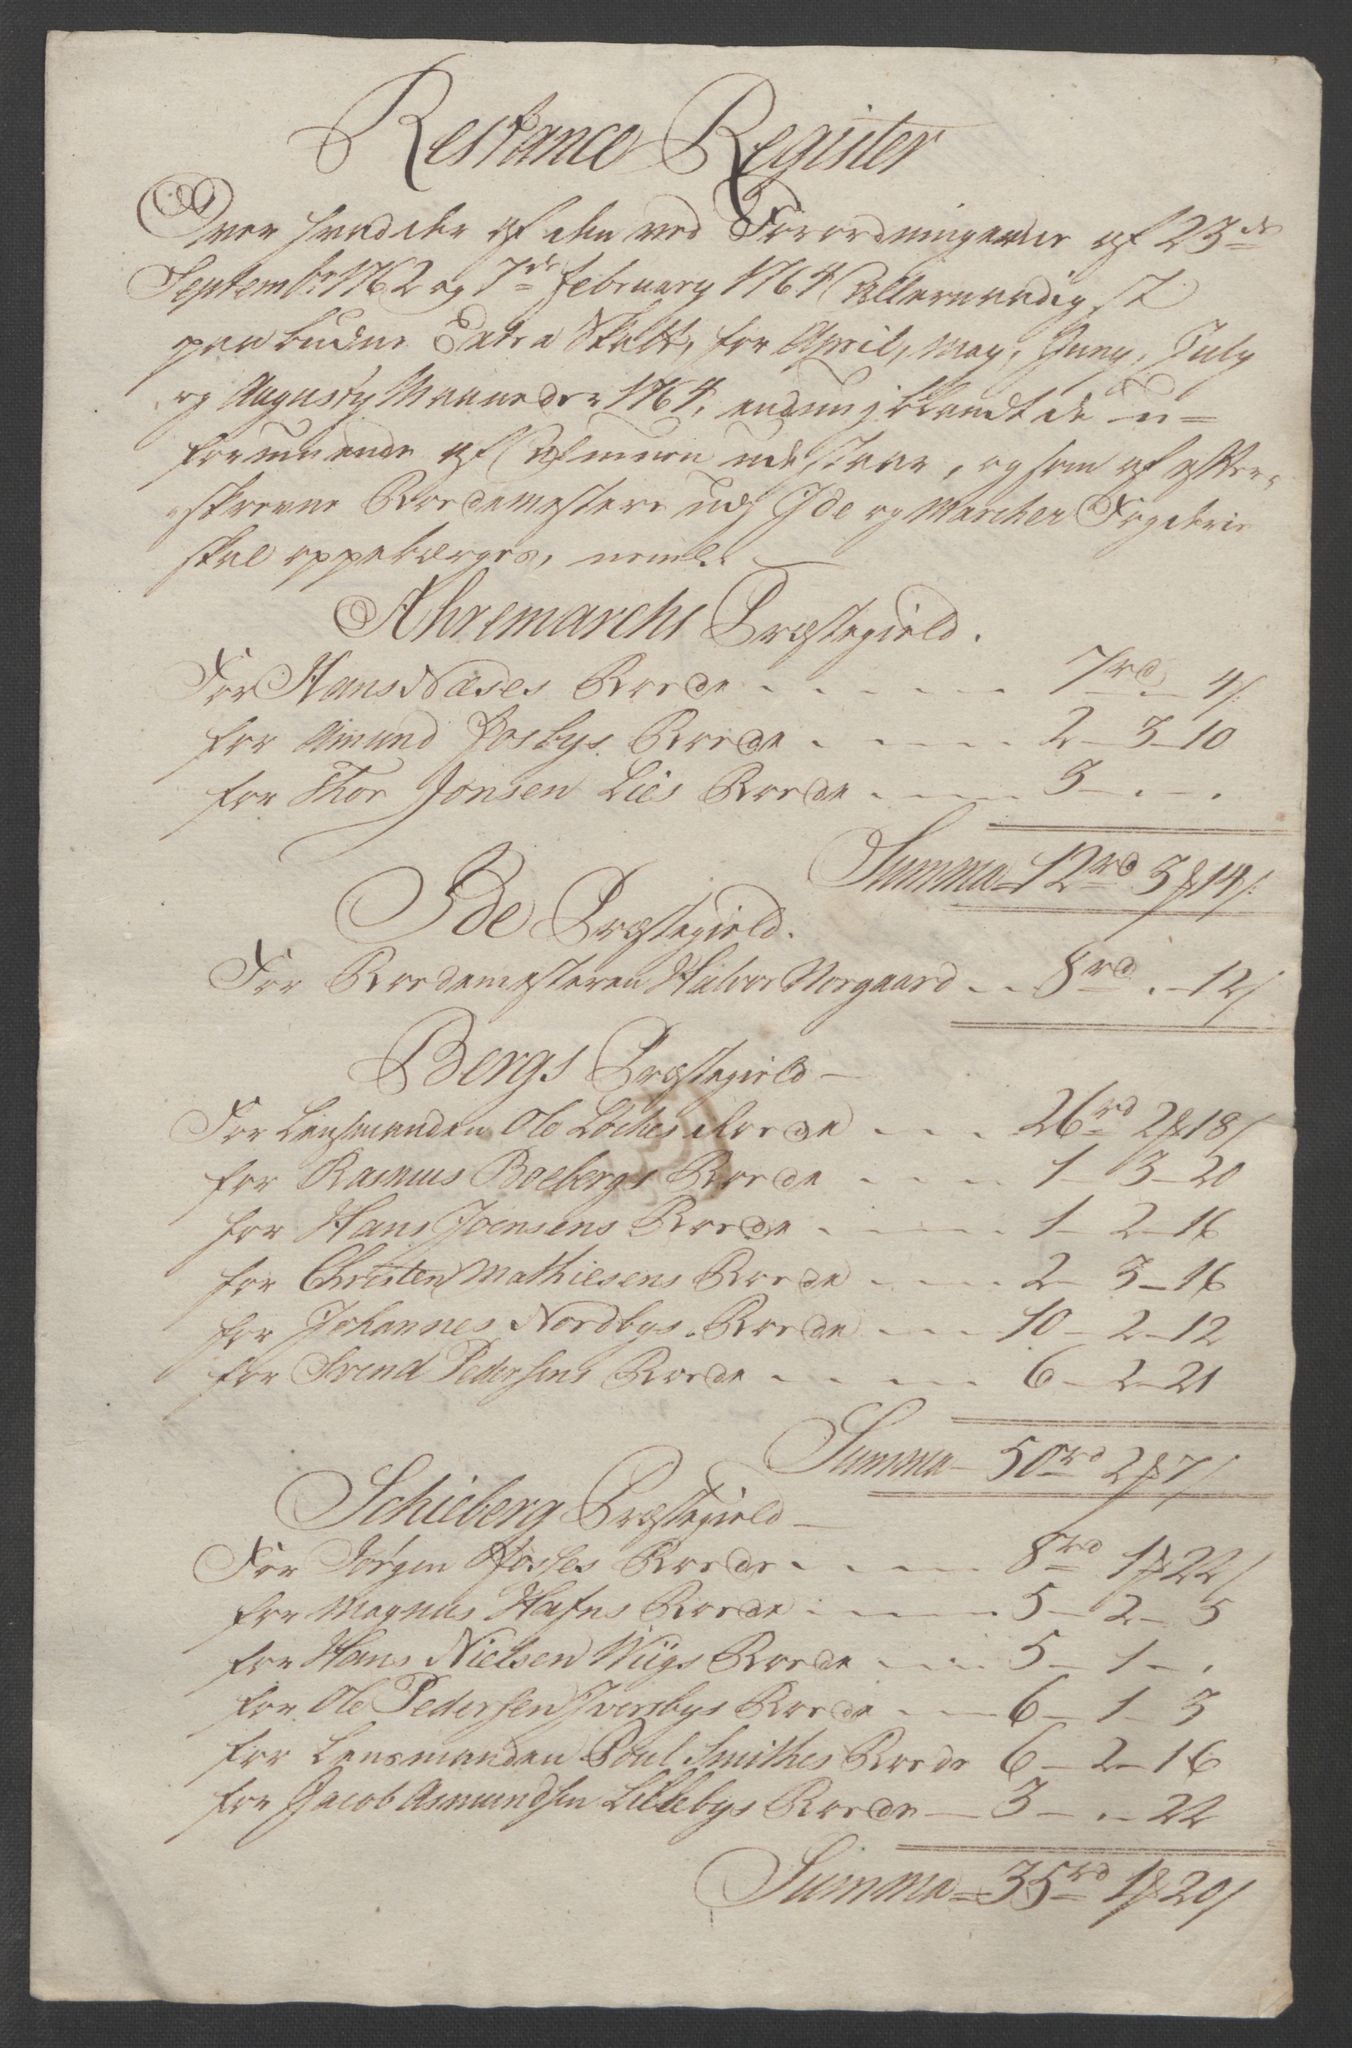 Restance Register
Over hvad der af den ved Forordningerne af 23de
Septembr 1762 og 7de February 1764 Allernaadigst
paabudne Extra Skatt, for April, May, Juny, July
og Augusty Maaneder 1764, endnu j blandt de u=
formuende af Almuen udestaar, og som af efter=
skrevne Roedemestere udj Ide og Marcher Fogderie
skal oppebærges, neml.
Ahremarchs Præstegield.
For Hans Næses Roede . . . . . 7rd . 4 s:
for Amund Josbys Roede . . . . 2 - 3 - 10
for Thor Jonsen Lies Roede . . . 3 - . - .
Summa = 12rd 3 # 14 s:
Ide Præstegield.
For Roedemesteren Halvor Norgaard . . 8rd . - 12 s
Bergs Præstegield
For Lensmanden Ole Löches Roede . . . 26rd 2 # 18 s
for Rasmus Boebergs Roede . . . . 1 - 3 - 20
for Hans Joensens Roede . . . . 1 - 2 - 16
for Christen Mathiesens Roede . . . 2 - 3 - 16
for Johannes Nordbys Roede . . . 10 - 2 - 12
for Svend Pedersens Roede . . . . 6 - 2 - 21
Summa - 50rd 2 # 7 s
Schieberg Præstegield
For Jörgen Roede . . . . 8rd 1 # 22 s
for Magnus Hafns Roede . . . . 5 - 2 - 5
for Hans Nielsen Wiigs Roede . . . 5 - 1 - .
for Ole Pedersen Iversbys Roede . . 6 - 1 - 3
for Lensmanden Poul Smithes Roede 6 - 2 - 16
for Jacob Asmundsen Lillebys Roede - 3 - . - 22
Summa = 35rd 1 # 20 s